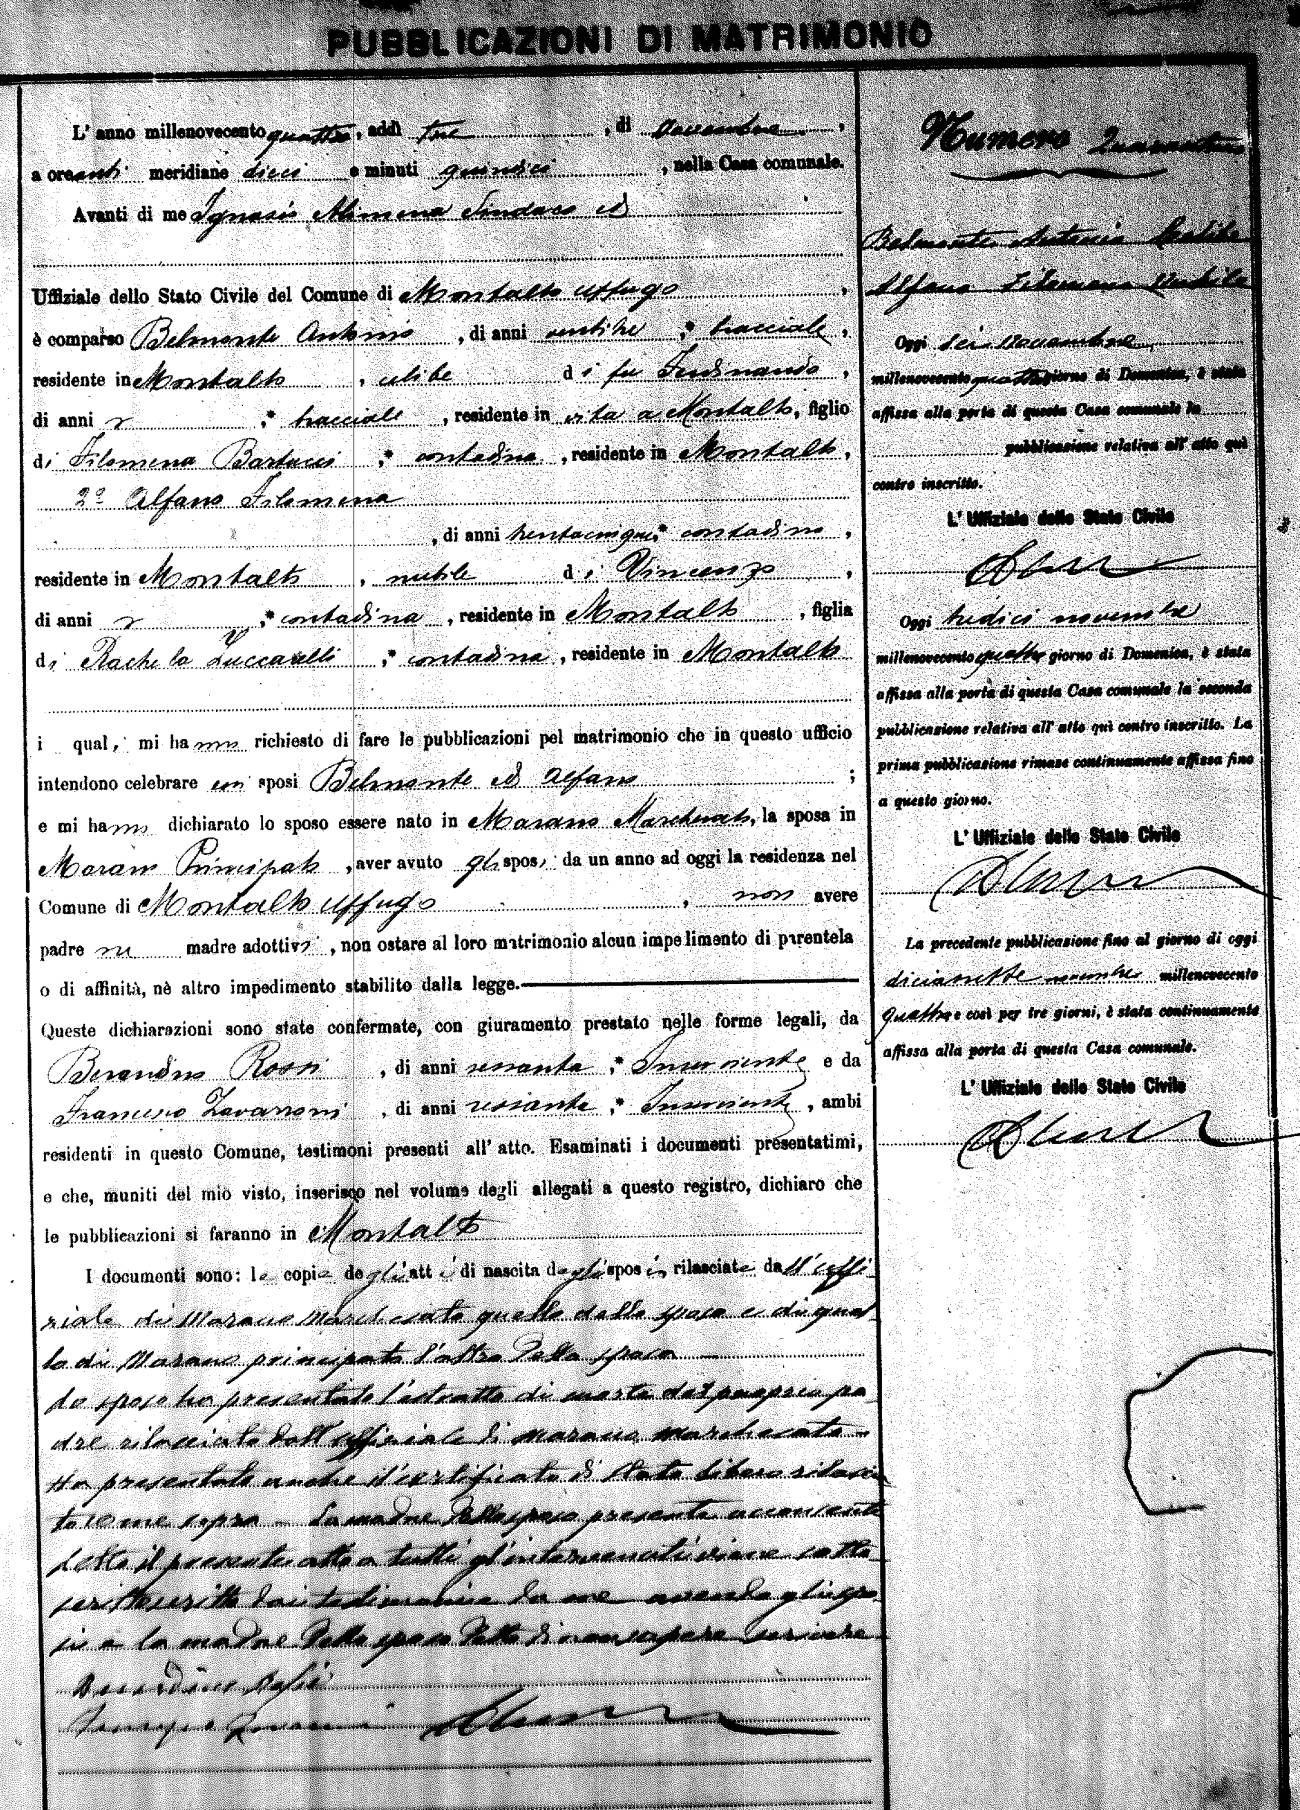 PUBBLICAZIONI DI MATRIMONIO
L' anno millenovecento quattro, addì tre, di Novembre,
a ore anti meridiane dieci e minuti quindici, nella Casa comunale.
Avanti di me Ignazio Alimena Sindaco ed
Uffiziale dello Stato Civile del Comune di Montalto Uffugo,
è comparso Belmonte Antonio, di anni ventitre, * bracciale,
residente in Montalto, celibe di fu Ferdinando,
di anni, * bracciale, residente in vita a Montalto, figlio
di Filomena Bartucci, * contadina, residente in Montalto,
2º Alfano Filomena
, di anni trentacinque, * contadina,
residente in Montalto, nubile di Vincenzo,
di anni, * contadina, residente in Montalto, figlia
di Rachela Zuccarelli, * contadina, residente in Montalto
i quali mi hanno richiesto di fare le pubblicazioni pel matrimonio che in questo ufficio
intendono celebrare essi sposi Belmonte ed Alfano;
e mi hanno dichiarato lo sposo essere nato in Marano Marchesato, la sposa in
Marano Principato, aver avuto gli sposi da un anno ad oggi la residenza nel
Comune di Montalto Uffugo, non avere
padre nè madre adottivi, non ostare al loro matrimonio alcun impedimento di parentela
o di affinità, nè altro impedimento stabilito dalla legge.
Queste dichiarazioni sono state confermate, con giuramento prestato nelle forme legali, da
Berardino Rossi, di anni sessanta, * Inserviente e da
Francesco Zavarroni, di anni sessanta, * Inserviente, ambi
residenti in questo Comune, testimoni presenti all' atto. Esaminati i documenti presentatimi,
e che, muniti del mio visto, inserisco nel volume degli allegati a questo registro, dichiaro che
le pubblicazioni si faranno in Montalto
I documenti sono: le copie degli atti di nascita degli sposi, rilasciate dall'uffi-
ziale di Marano Marchesato quella dello sposo e di quel-
lo di Marano principato l'altra della sposa
Lo sposo ha presentato l'estratto di morte del proprio pa
dre rilasciato dall'ufficiale di Marano Marchesato -
Ha presentato anche il certificato di stato libero rilascia
to come sopra - La madre dello sposo presente acconsente
Letto il presente atto a tutti gl'intervenuti viene sotto
scritto dai testimoni e da me avendo gli spo
si e la madre dello sposo detto di non sapere scrivere
Berardino Rossi
Numero Quarantuno
Belmonte Antonio Celibe
Alfano Filomena Nubile
Oggi sei Novembre
millenovecento quattro giorno di Domenica, è stata
affissa alla porta di questa Casa comunale la
pubblicazione relativa all' atto quì
contro inscritto.
L' Uffiziale dello Stato Civile
Oggi tredici novembre
millenovecento quattro giorno di Domenica, è stata
affissa alla porta di questa Casa comunale la seconda
pubblicazione relativa all' atto quì contro inscritto. La
prima pubblicazione rimase continuamente affissa fino
a questo giorno.
L' Uffiziale dello Stato Civile
La precedente pubblicazione fino al giorno di oggi
diciassette novembre millenovecento
quattro e così per tre giorni, è stata continuamente
affissa alla porta di questa Casa comunale.
L' Uffiziale dello Stato Civile